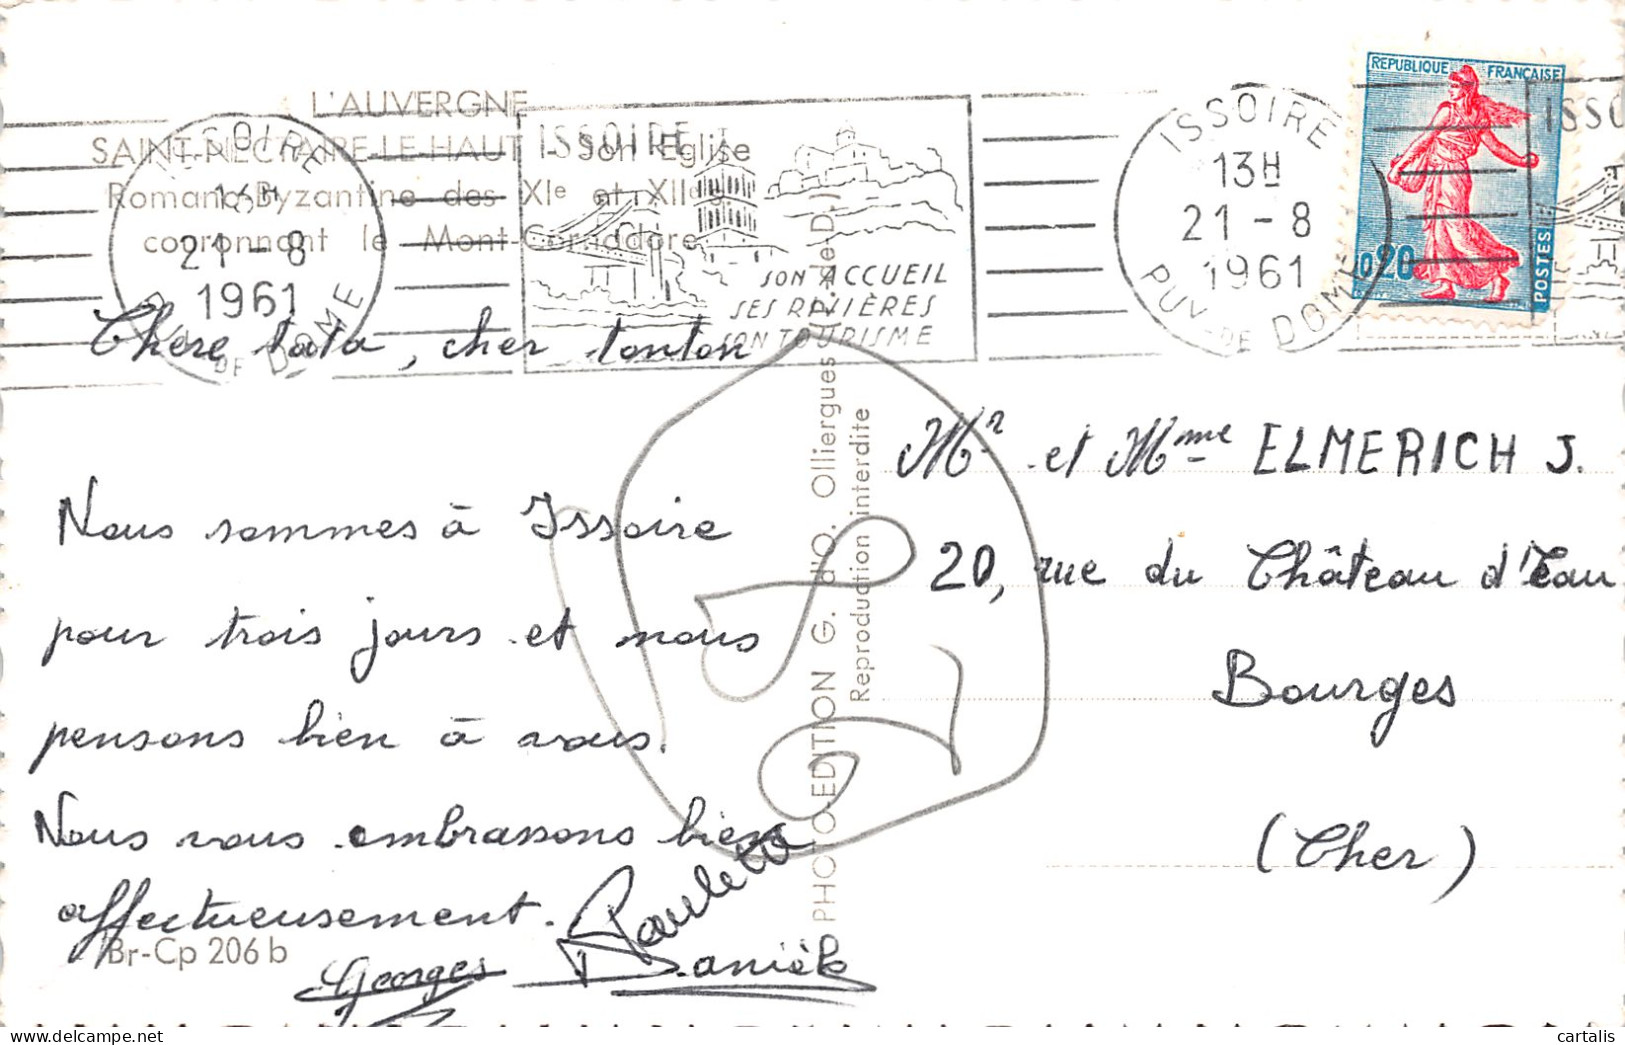 L'AUVERGNE
SAINT-NECTAIRE-LE-HAUT - Son Eglise
Romano-Byzantine des XIe et XIIe s.
couronnant le Mont-Cornadore
ISSOIRE
16H
21 - 8
1961
PUY-DE-DOME
ISSOIRE
SON ACCUEIL
SES RIVIÈRES
SON TOURISME
ISSOIRE
13H
21 - 8
1961
PUY-DE-DOME
REPUBLIQUE FRANÇAISE
0,20
POSTES
ISSO
Chère tata, cher tonton
Nous sommes à Issoire
pour trois jours et nous
pensons bien à vous.
Nous vous embrassons bien
affectueusement.
Georges
Paulette
Danièle
Br-Cp 206 b
PHOTO-EDITION G. d'O. Olliergues (P.-de-D.)
Reproduction interdite
Mr et Mme ELMERICH J.
20, rue du Château d'Eau
Bourges
(Cher)
cartalis